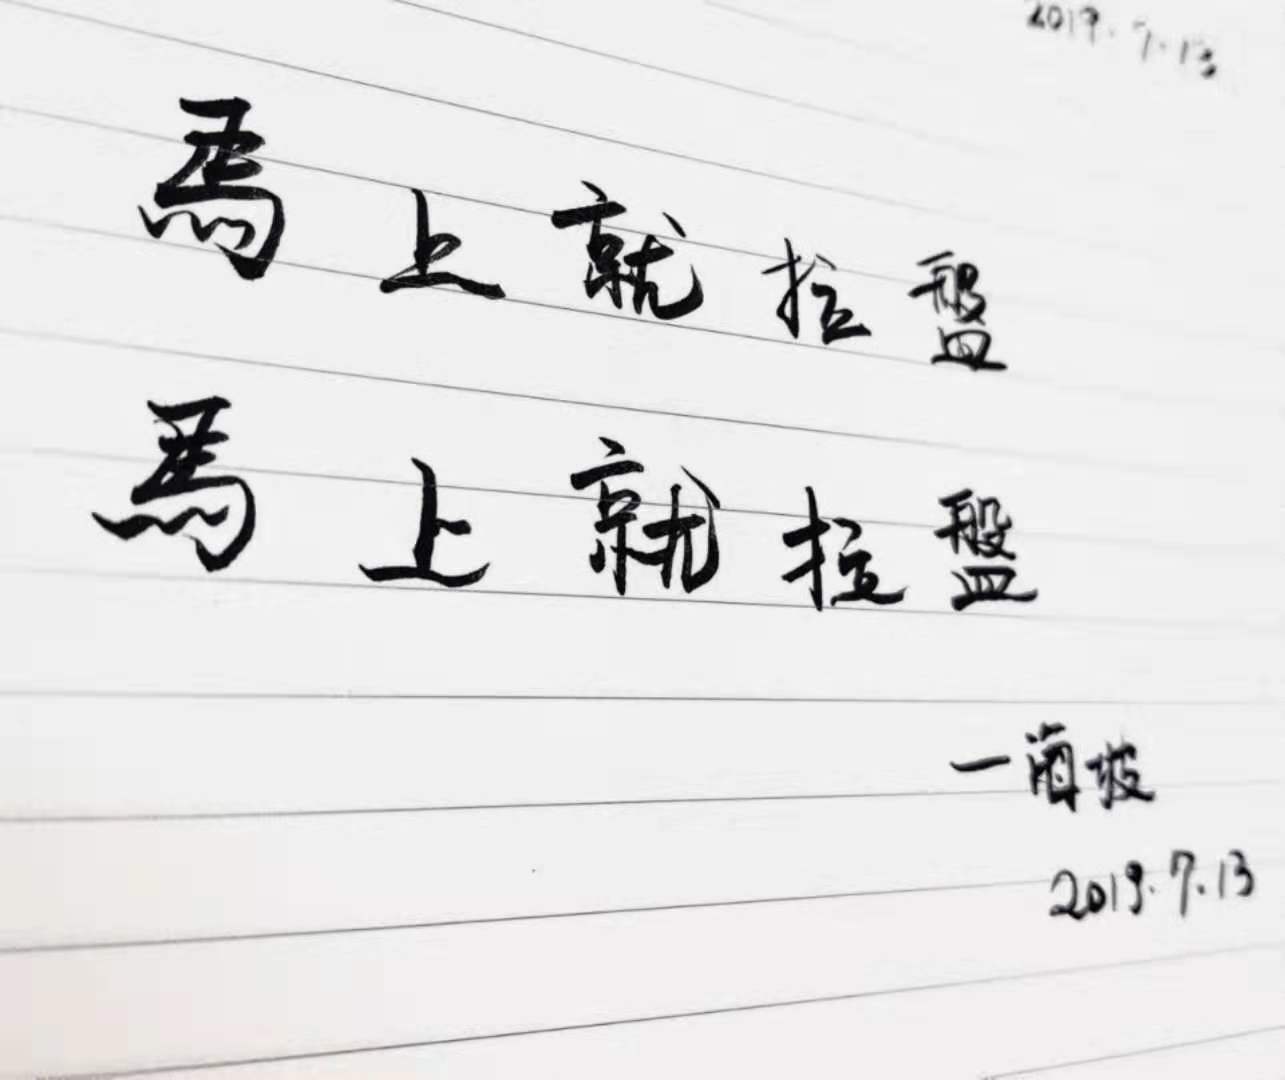 2019.7.13
馬上就拉盤
馬上就拉盤
一海坡
2019.7.13